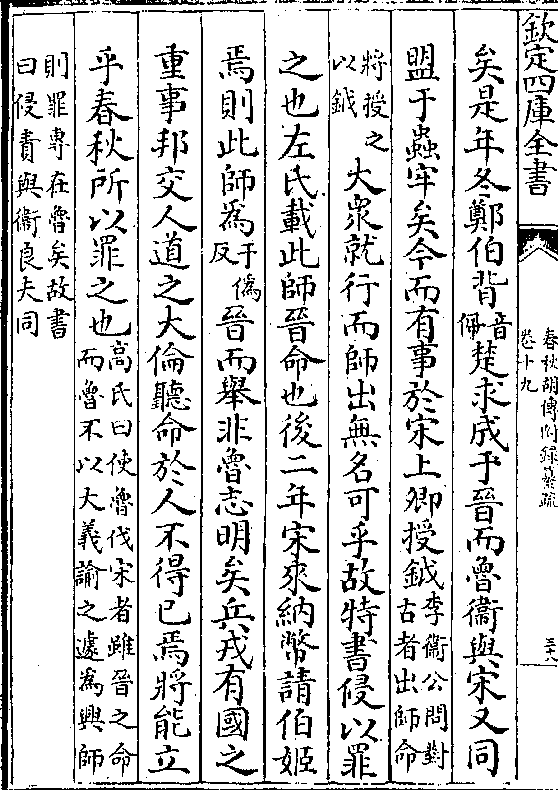 欽定四庫全書
春秋胡傳附錄纂疏
卷十九
三十八
矣是年冬鄭伯背音佩楚求成于晉而魯衞與宋又同
盟于蟲牢矣今而有事於宋上卿授鉞李衞公問對古者出師命
將授之以鉞大衆就行而師出無名可乎故特書侵以罪
之也左氏載此師晉命也後二年宋來納幣請伯姬
焉則此師爲于僞反晉而舉非魯志明矣兵戎有國之
重事邦交人道之大倫聽命於人不得已焉將能立
乎春秋所以罪之也高氏曰使魯伐宋者雖晉之命而魯不以大義諭之遽爲興師
則罪專在魯矣故書曰侵責與衞良夫同